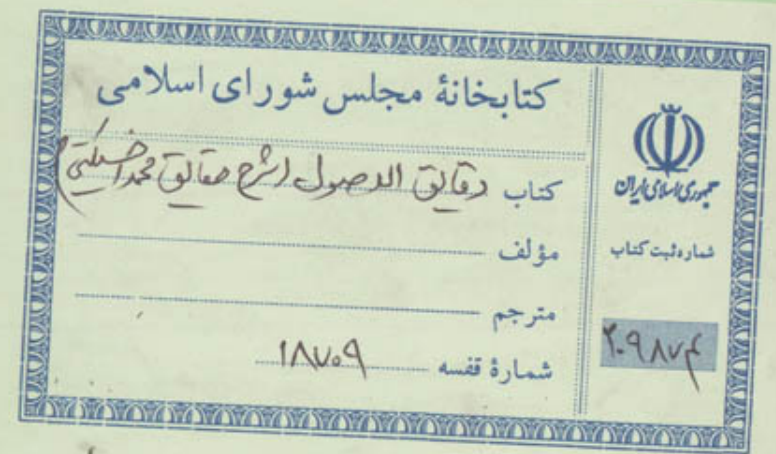 کتابخانهٔ مجلس شورای اسلامی
کتاب دقایق الاصول (شرح حقایق محمد اخسیکتی)
مؤلف
مترجم
شمارهٔ قفسه ۱۸۷۰۹
جمهوری اسلامی ایران
شماره ثبت کتاب
۲۰۹۸۷۴